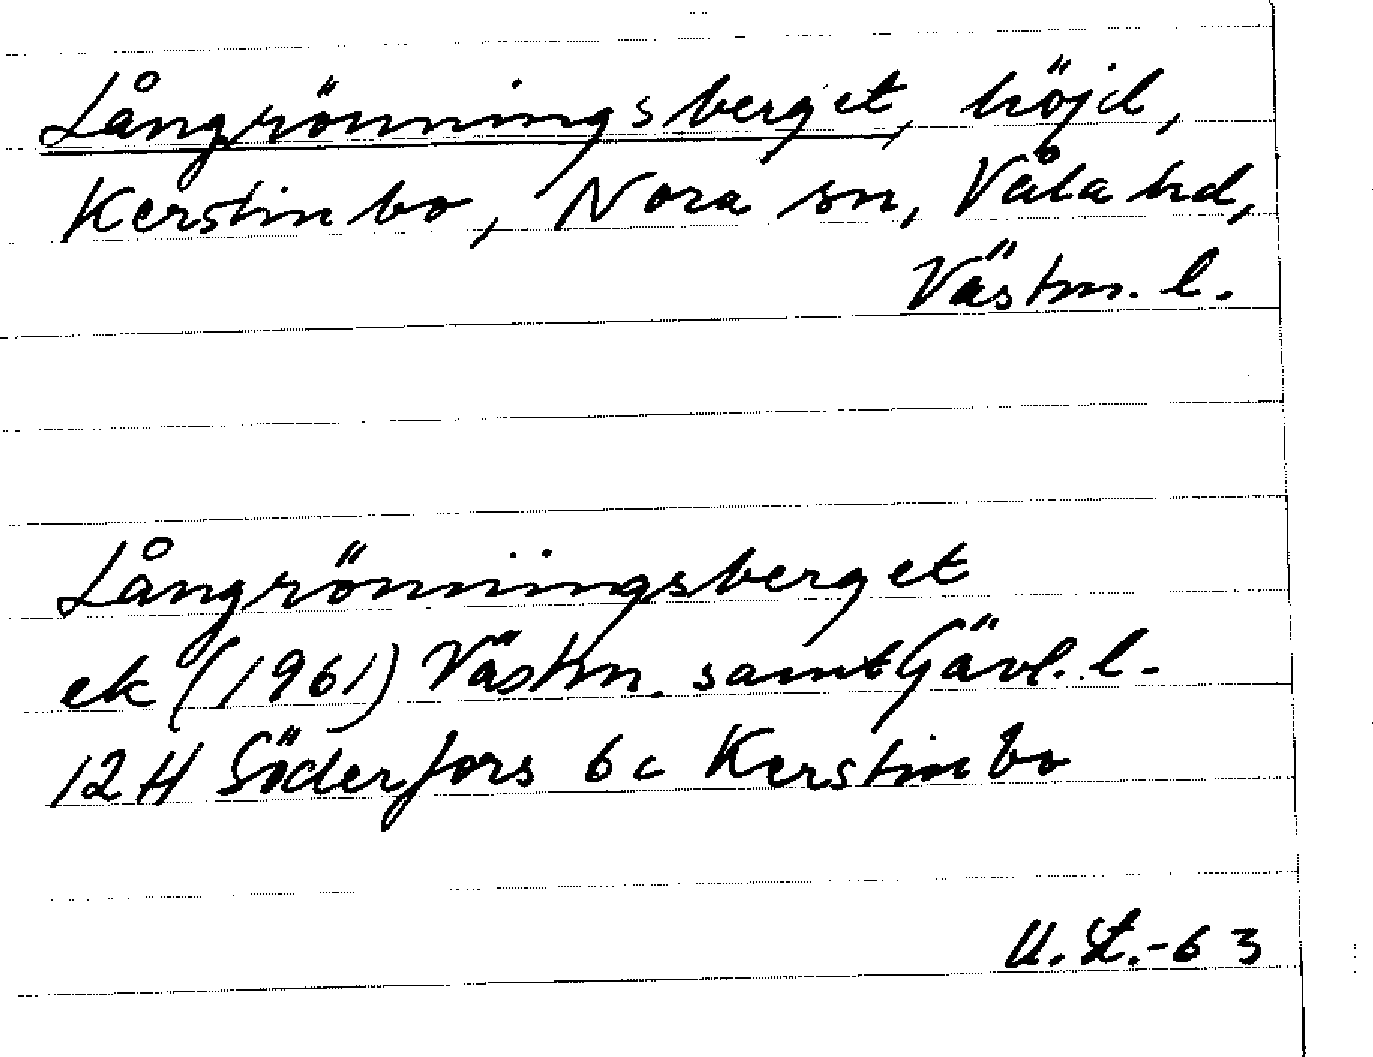 Långrönningsberget, höjd,
Kerstinbo, Nora sn, Våla hd,
Västm. l.
Långrönningsberget
ek (1961) Västm. samt Gävl. l.
12 H Söderfors 6c Kerstinbo
U. L.-63